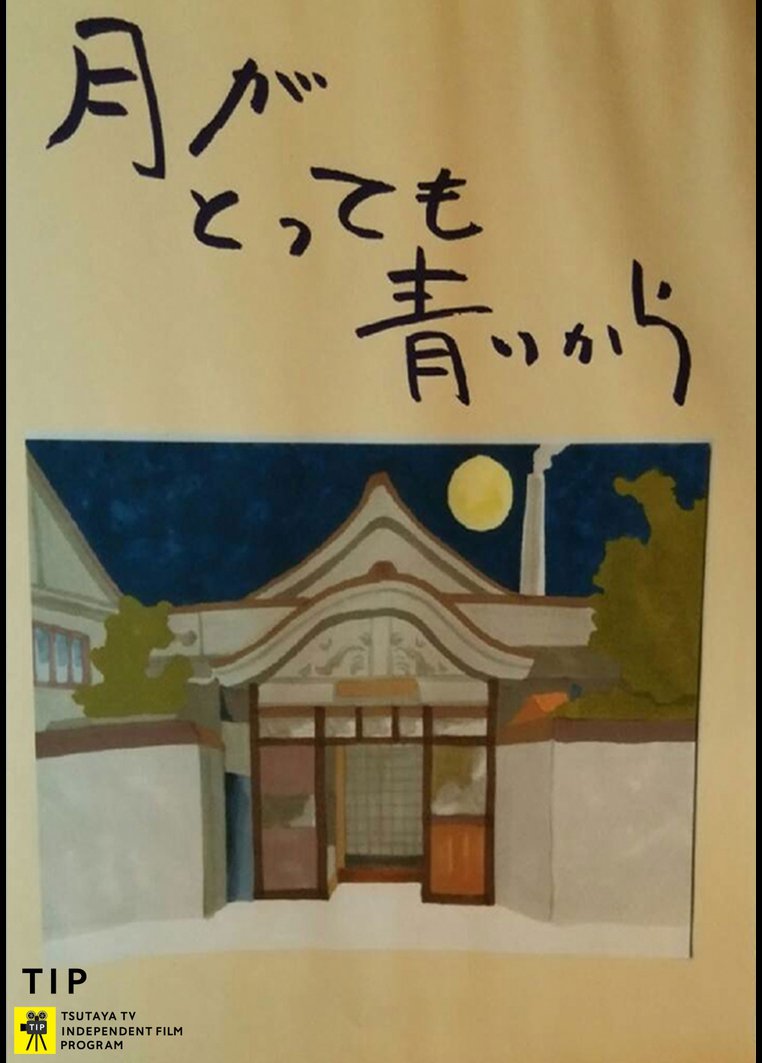 月が
とっても
青いから
TIP
TIP
TSUTAYA TV
INDEPENDENT FILM
PROGRAM